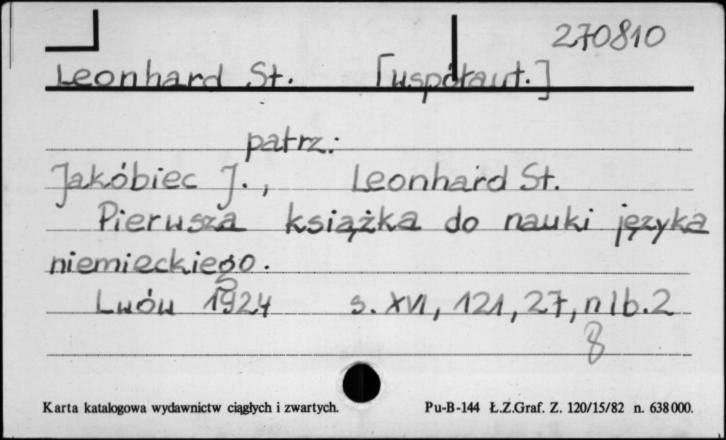 270810
Leonhard St. [współaut.]
patrz:
Jakóbiec J., Leonhard St.
Pierwsza książka do nauki języka
niemieckiego.
Lwów 1924 s. XVI, 121, 27, nlb. 2
8
Karta katalogowa wydawnictw ciągłych i zwartych. Pu-B-144 Ł.Z.Graf. Z. 120/15/82 n. 638000.